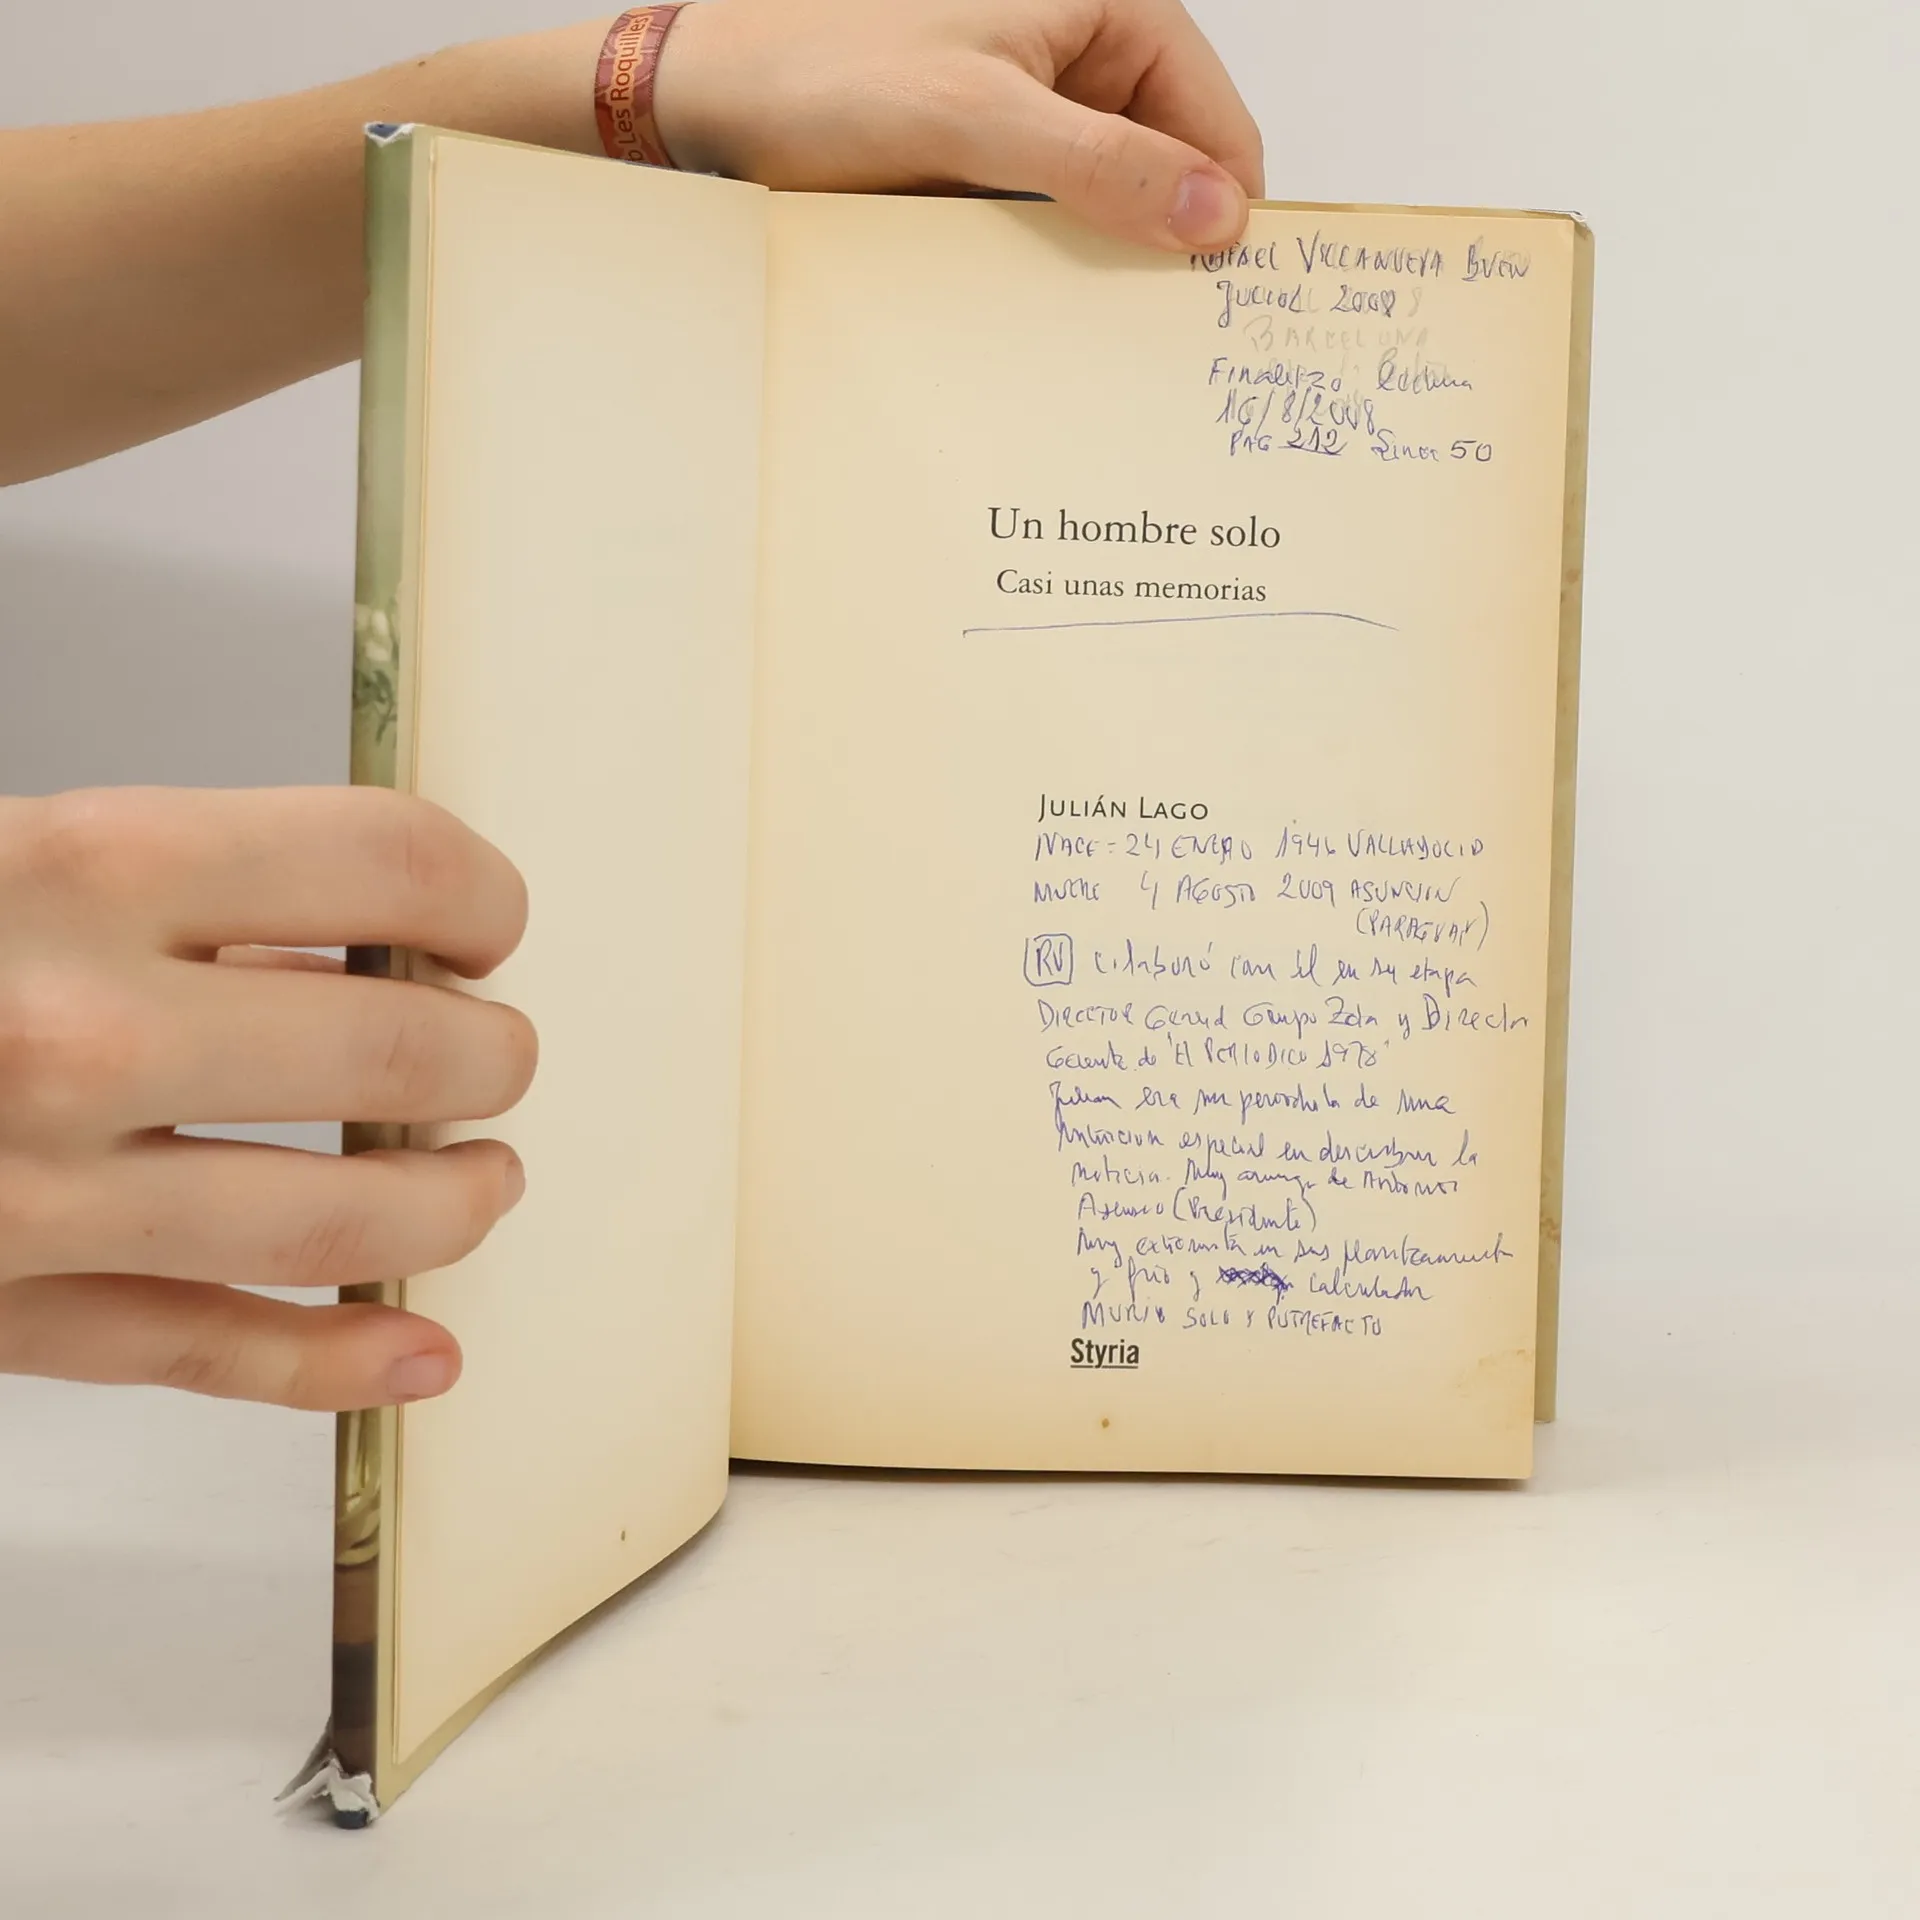 b Les Roquilles
RAFAEL VILLANUEVA BUEN
JULIOL 2008
BARCELONA
Finalizo lectura
16/8/2008
PAG 212 50
Un hombre solo
Casi unas memorias
JULIÁN LAGO
NACE = 24 ENERO 1946 VALLADOLID
MUERE 4 AGOSTO 2009 ASUNCION
(PARAGUAY)
RV colaboró con él en su etapa
DIRECTOR General Grupo Zeta y Director
Gerente de "El PERIODICO 1978"
Julian era un periodista de una
intuicion especial en descubrir la
noticia. Muy amigo de Antonio
Asensio (Presidente)
Muy extremista en sus planteamient
y frio y calculador
MURIO SOLO Y PUTREFACTO
Styria